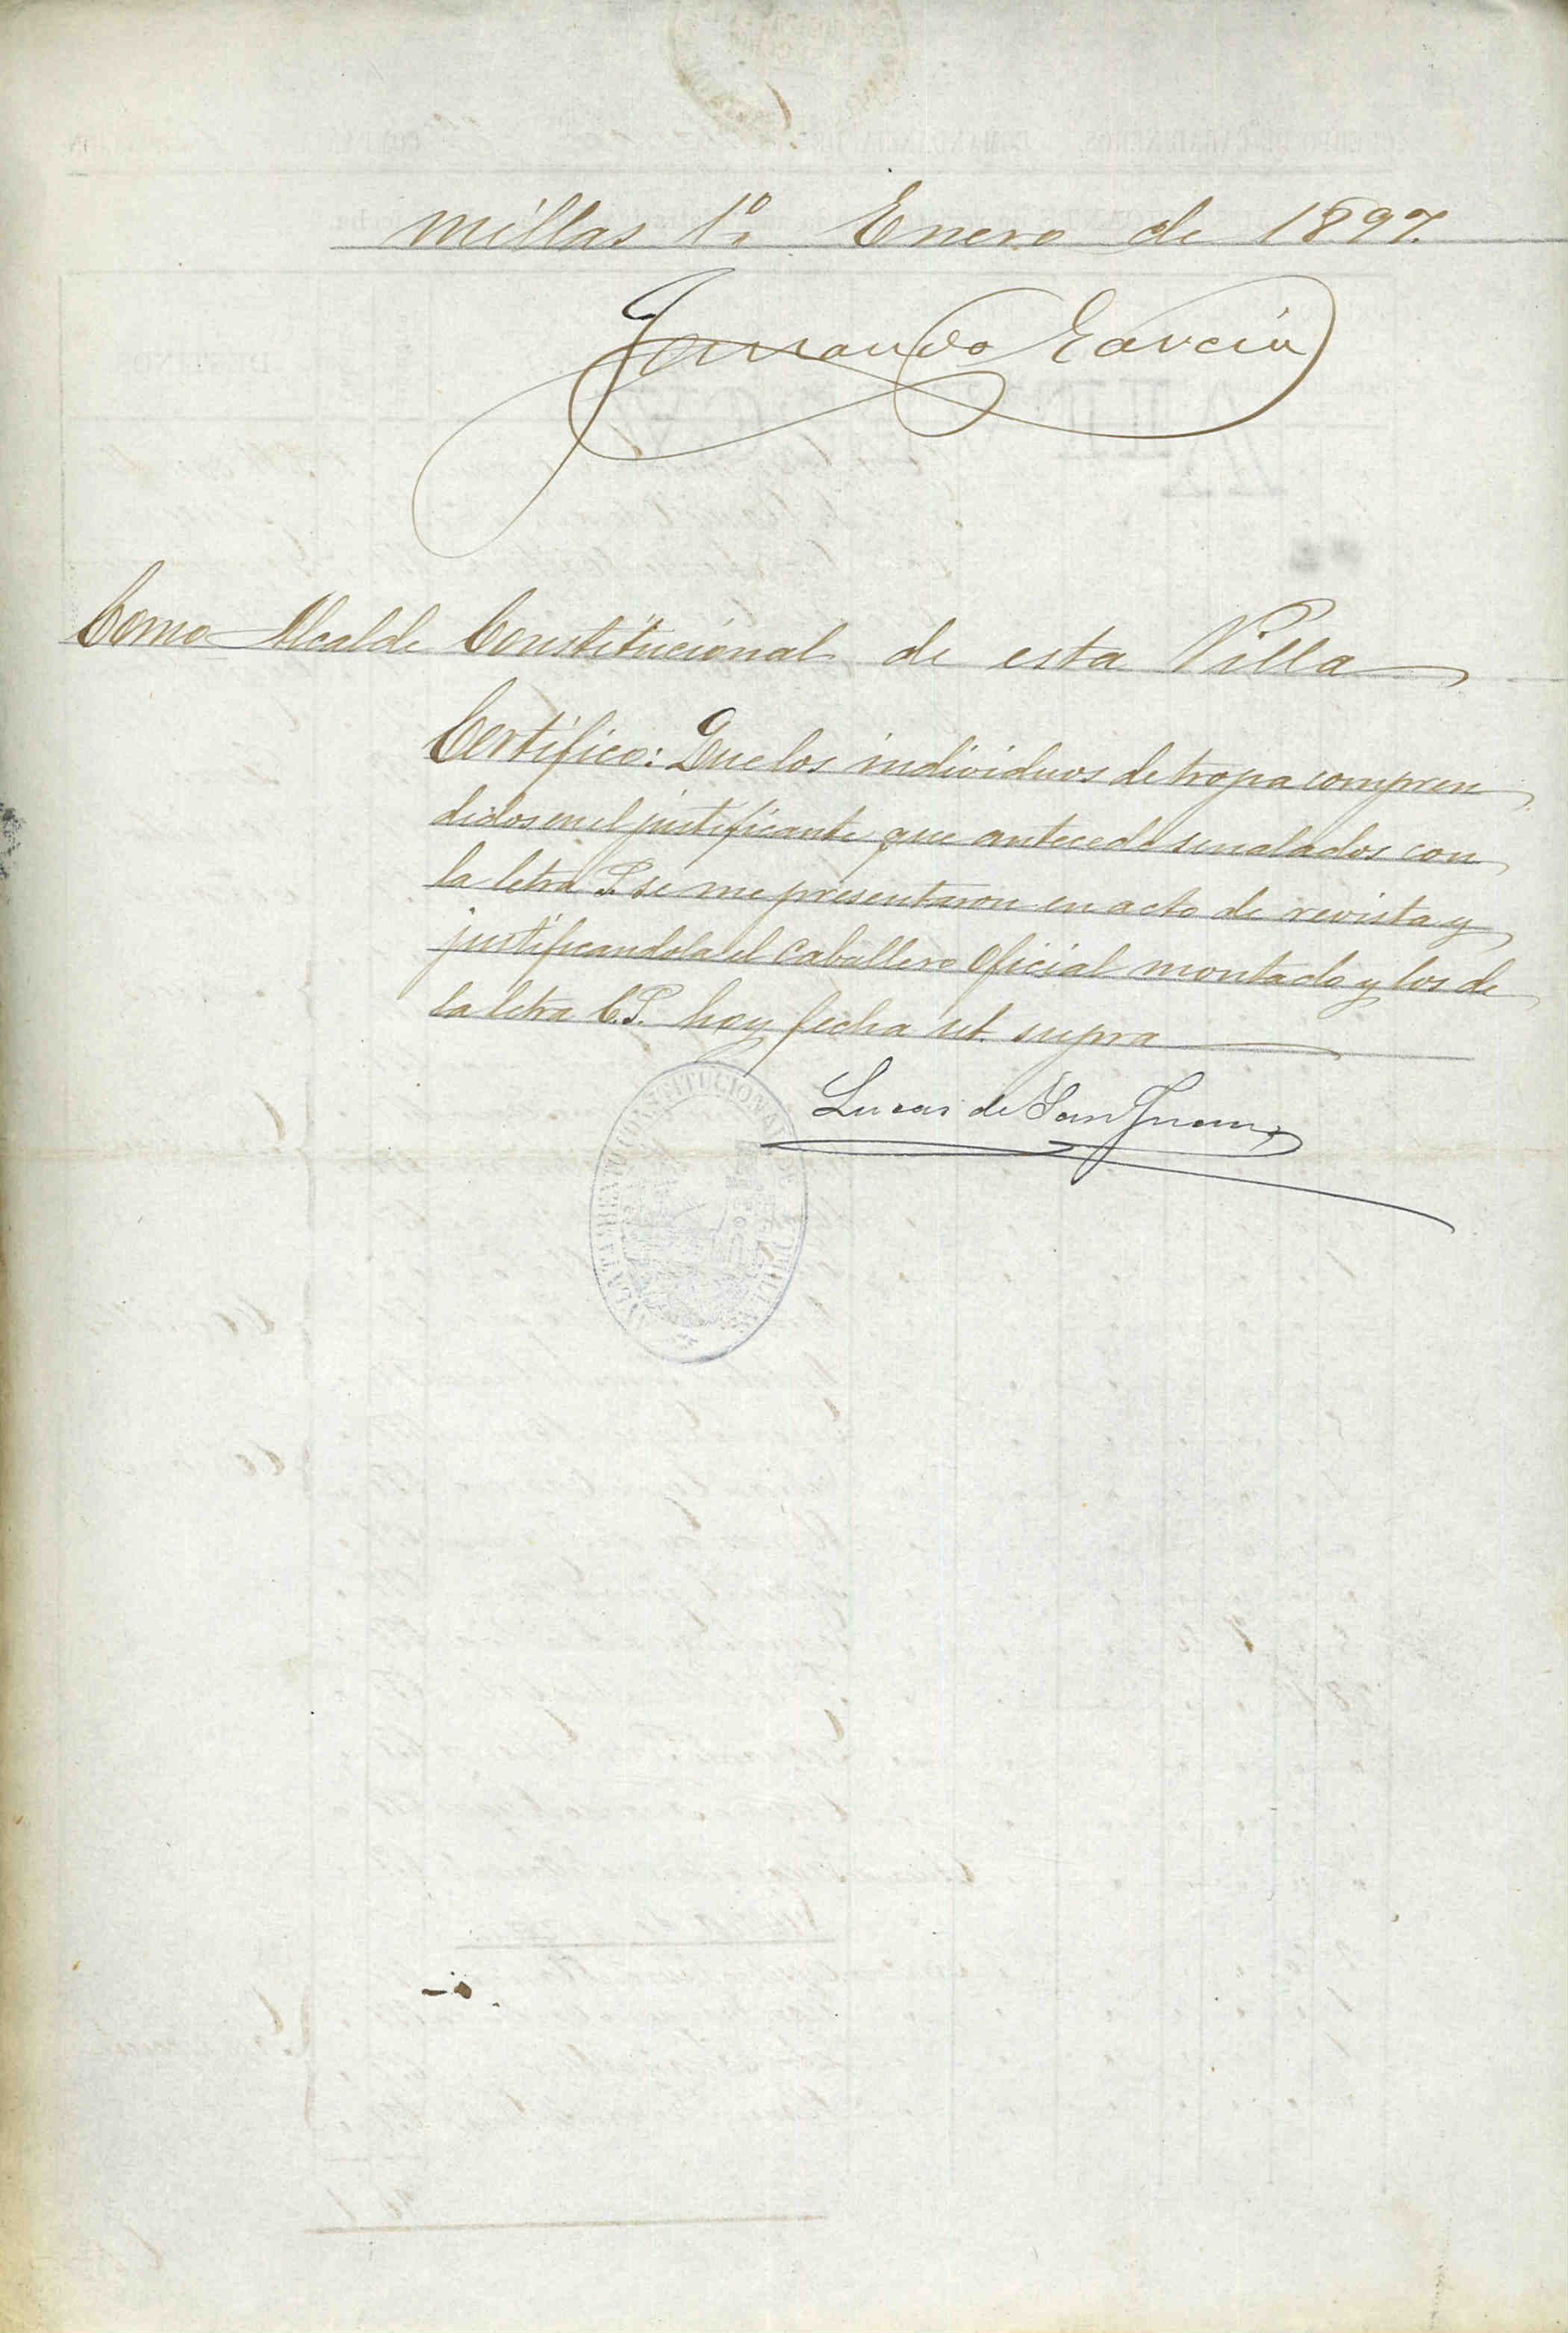 millas 1º Enero de 1897.
Fernando García
Como Alcalde Constitucional de esta Villa
Certifico: Que los individuos de tropa compren
didos en el justificante que antecede senalados con
la letra P. se me presentaron en acto de revista y
justificandola el Caballero Oficial montado y los de
la letra C.P. hoy fecha ut. supra
Lucas de San Juan
CONSTITUCIONAL DE